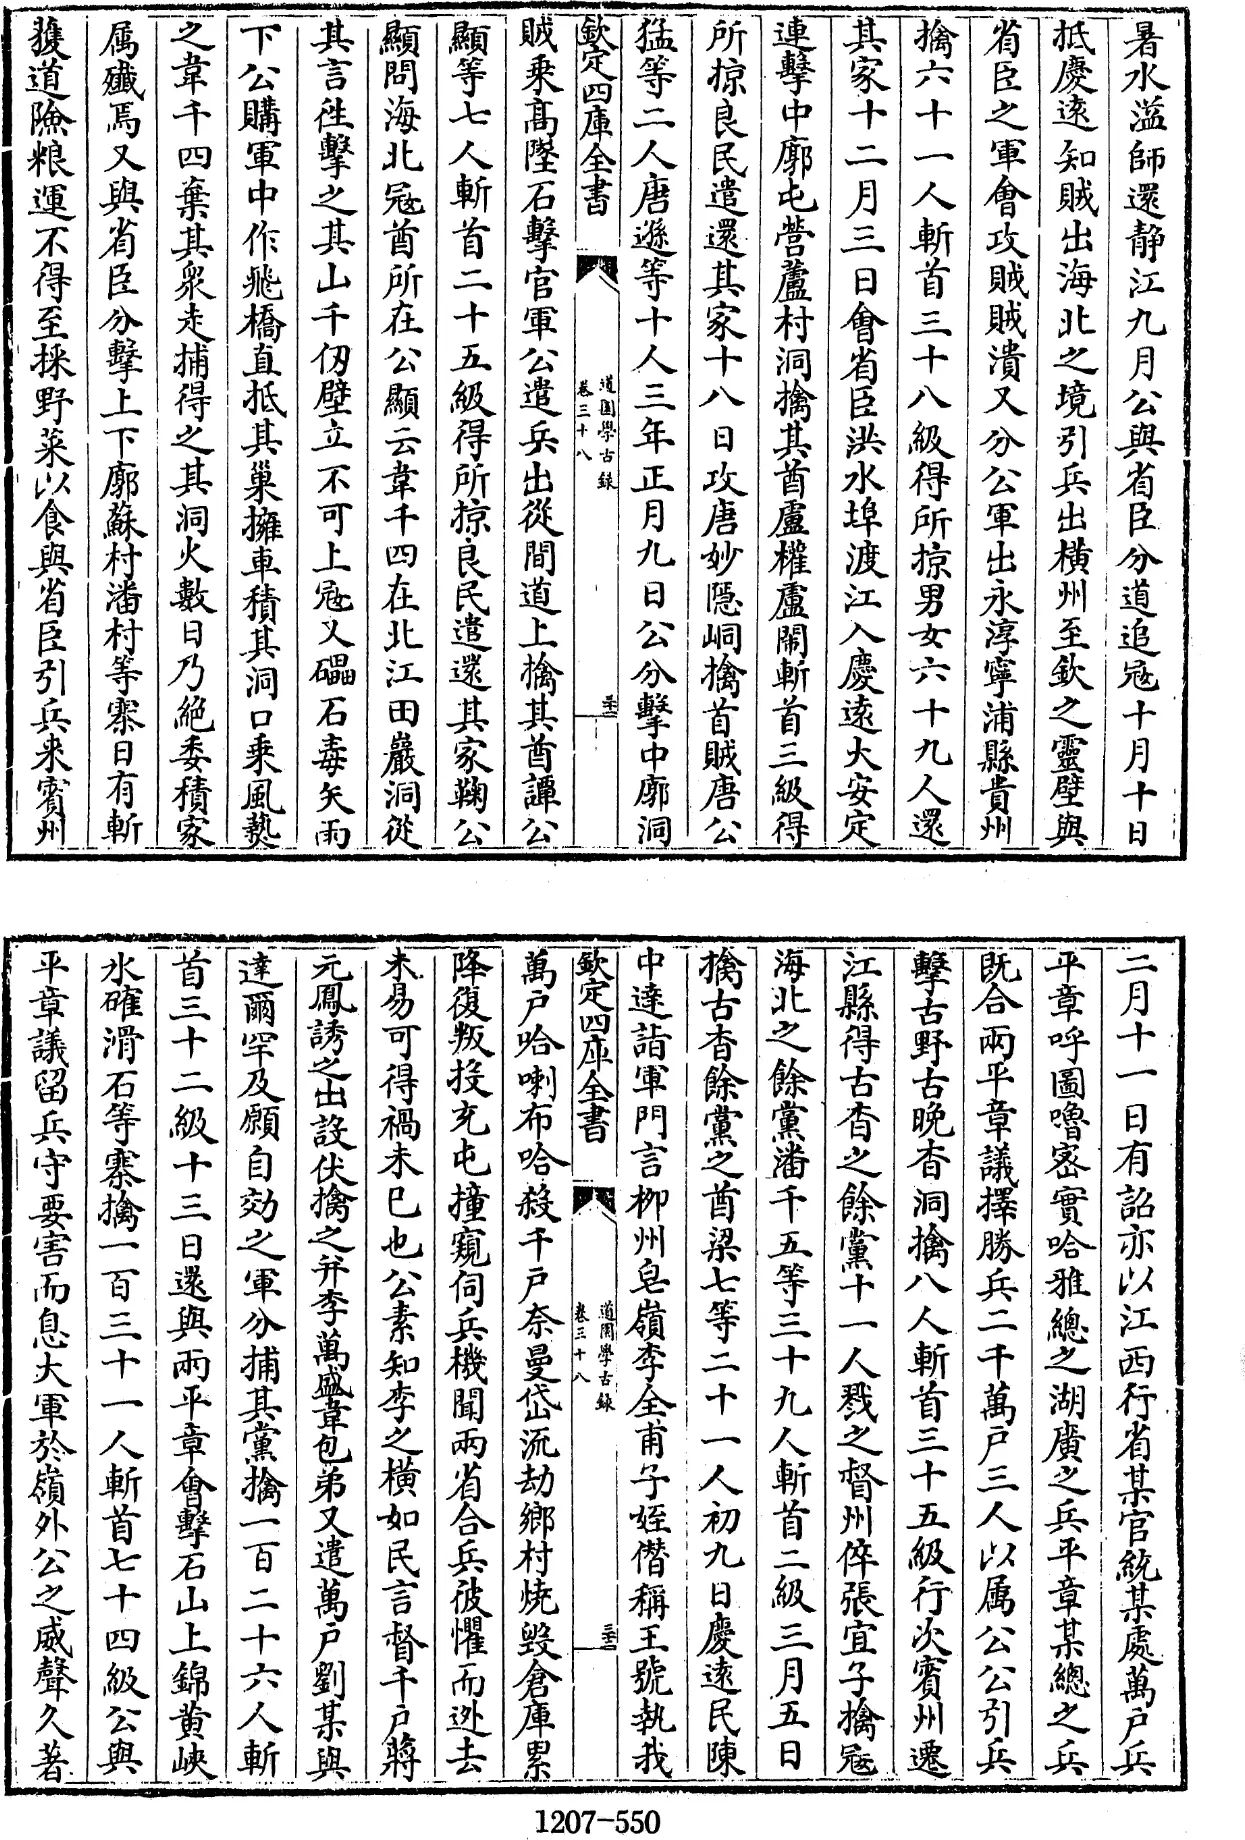 暑水溢師還静江九月公與省臣分道追冦十月十日
抵慶逺知賊出海北之境引兵出橫州至欽之靈壁與
省臣之軍會攻賊賊潰又分公軍出永淳寧浦縣貴州
擒六十一人斬首三十八級得所掠男女六十九人還
其家十二月三日會省臣洪水埠渡江入慶逺大安定
連擊中廓屯營蘆村洞擒其酋盧權盧鬧斬首三級得
所掠良民遣還其家十八日攻唐妙隠峒擒首賊唐公
猛等二人唐遜等十人三年正月九日公分擊中廓洞
欽定四庫全書
道園學古録
卷三十八
三十二
賊乘高陛石擊官軍公遣兵出從間道上擒其酋譚公
顯等七人斬首二十五級得所掠良民遣還其家鞠公
顯問海北冦酋所在公顯云韋千四在北江田巖洞從
其言徃擊之其山千仭壁立不可上冦乂礌石毒矢雨
下公購軍中作飛橋直抵其巢擁車積其洞口乘風爇
之韋千四棄其衆走捕得之其洞火數日乃絶委積家
属殲焉又與省臣分擊上下廓蘇村潘村等寨日有斬
獲道險粮運不得至採野菜以食與省臣引兵来賓州
二月十一日有詔亦以江西行省某官統某處萬戸兵
平章呼圖嚕密實哈雅總之湖廣之兵平章某總之兵
既合兩平章議擇勝兵二千萬戸三人以属公公引兵
擊古野古晩杳洞擒八人斬首三十五級行次賓州遷
江縣得古杳之餘黨十一人戮之督州倅張宜子擒冦
海北之餘黨潘千五等三十九人斬首二級三月五日
擒古杳餘黨之酋梁七等二十一人初九日慶逺民陳
中達詣軍門言柳州皂嶺李全甫子姪僭稱王號執我
欽定四庫全書
道園學古録
卷三十八
三十二
萬戸哈喇布哈殺千戸奈曼岱流劫鄉村焼毁倉庫累
降復叛投充屯撞窺伺兵機聞兩省合兵彼懼而迯去
未易可得禍未已也公素知李之橫如民言督千戸蔣
元鳳誘之出設伏擒之并李萬盛韋包弟又遣萬戸劉某與
達爾罕及願自効之軍分捕其黨擒一百二十六人斬
首三十二級十三日還與兩平章會擊石山上錦黄峽
水確滑石等寨擒一百三十一人斬首七十四級公與
平章議留兵守要害而息大軍於嶺外公之威聲久著
1207-550